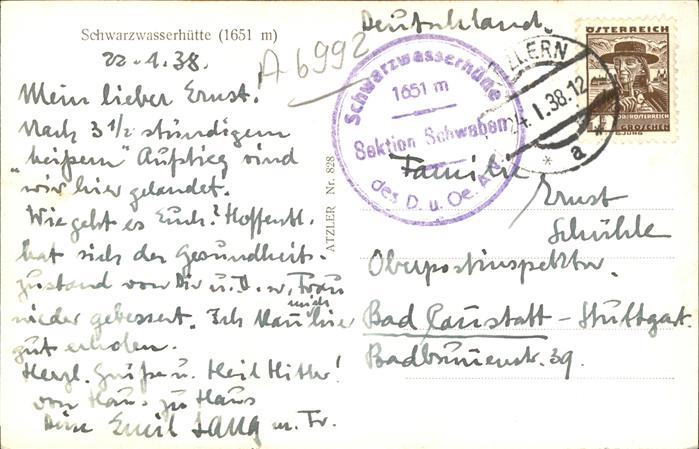 Schwarzwasserhütte (1651 m)
22.1.38.
Mein lieber Ernst!
Nach 3 1/2 stündigem
"heißem" Aufstieg sind
wir hier gelandet.
Wie geht es Euch? Hoffentl.
hat sich der Gesundheits-
zustand von Dir u. D. w. Frau
wieder gebessert. Ich kann mich hier
gut erholen.
Herzl. Grüße u. Heil Hitler!
von Haus zu Haus
Dein Emil Lang m. Fr.
A 6992
ATZLER Nr. 828
Schwarzwasserhütte
1651 m
Sektion Schwaben
des D. u. Oe. A.
24.I.38.12
a
ÖSTERREICH
GROSCHEN
Deutschland.
Familie
Ernst
Schühle
Oberpostinspektor.
Bad Canstatt - Stuttgart.
Badbrunnenstr. 39.